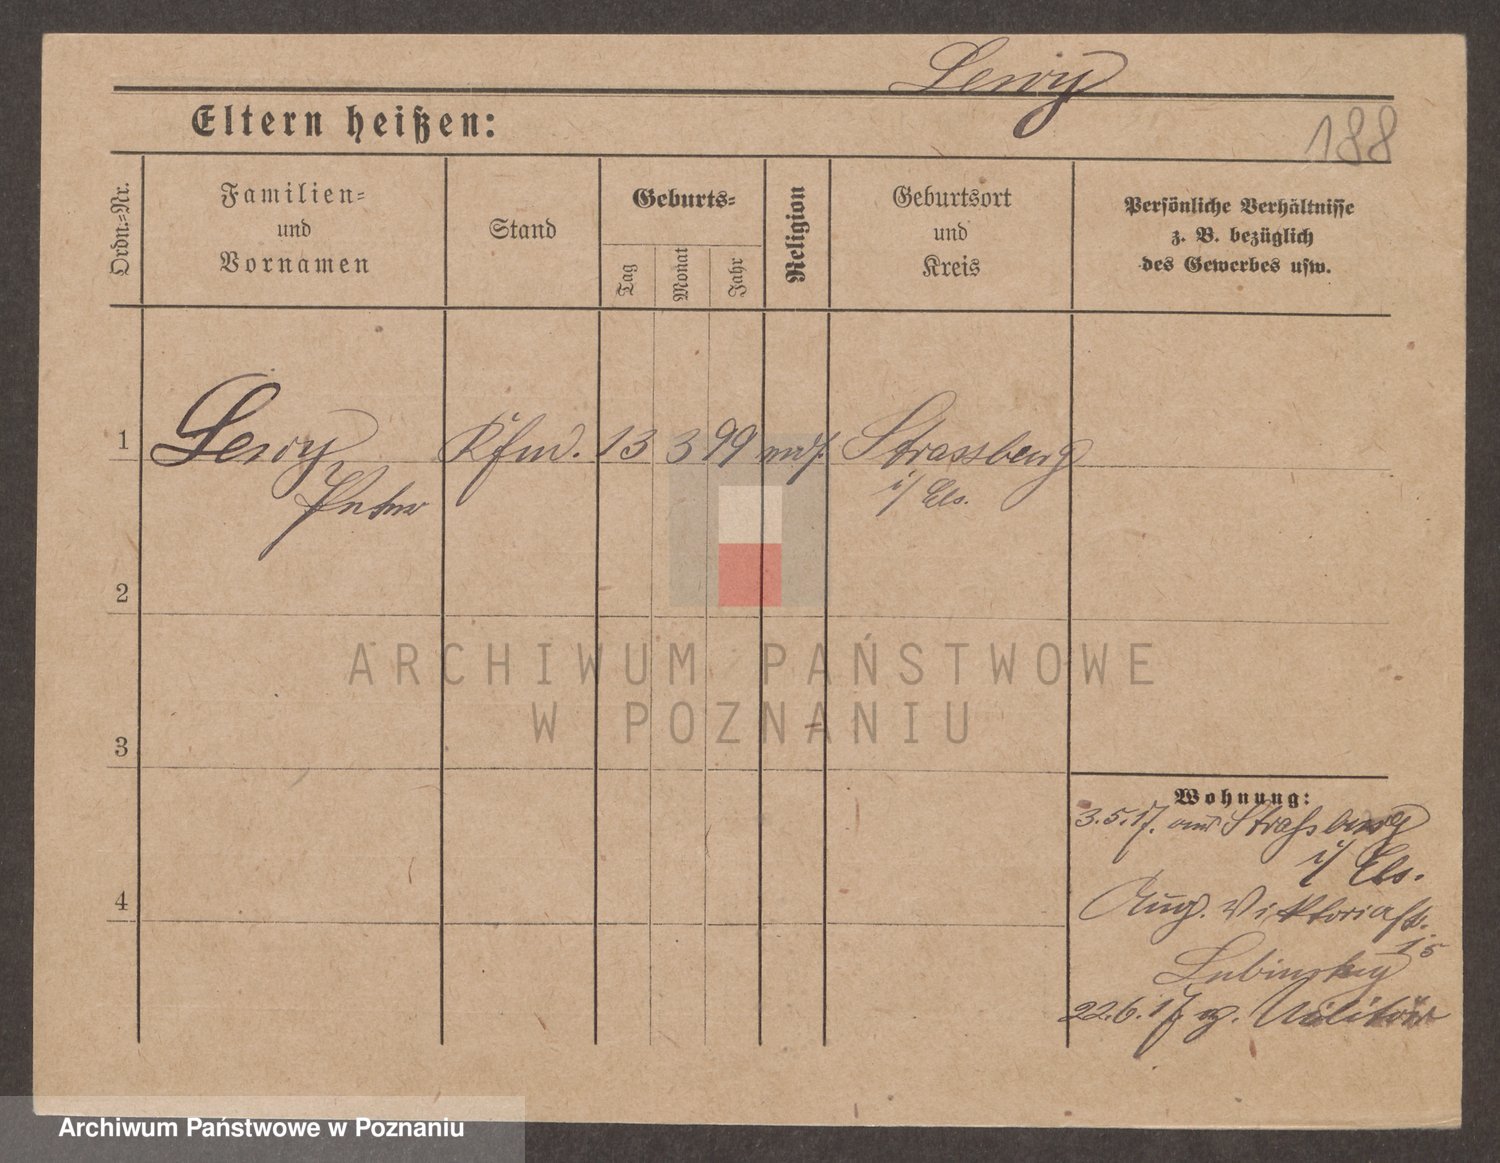 Lewy
Eltern heißen:
188
Ordn.-Nr.
Familien-
und
Vornamen
Stand
Geburts-
Tag
Monat
Jahr
Religion
Geburtsort
und
Kreis
Persönliche Verhältnisse
z. B. bezüglich
des Gewerbes usw.
1
Lewy
Peter
Kfm.
13
3
99
mos.
Strassburg
i/ Els.
2
3
4
Wohnung:
3.5.17. aus Straßburg
i/ Els.
Aug. Viktoriastr.
15
Lubinsky
22.6.17 z. Militär
ARCHIWUM PAŃSTWOWE
W POZNANIU
Archiwum Państwowe w Poznaniu